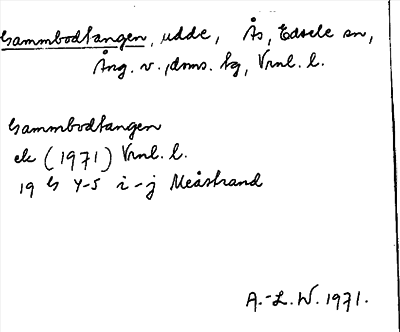 Gammbodtangen, udde, Ås, Edsele sn,
Ång. v. doms. tg, Vrnl. l.
Gammbodtangen
ek (1971) Vrnl. l.
19 G 4-5 i-j Meåstrand
A.-L. W. 1971.